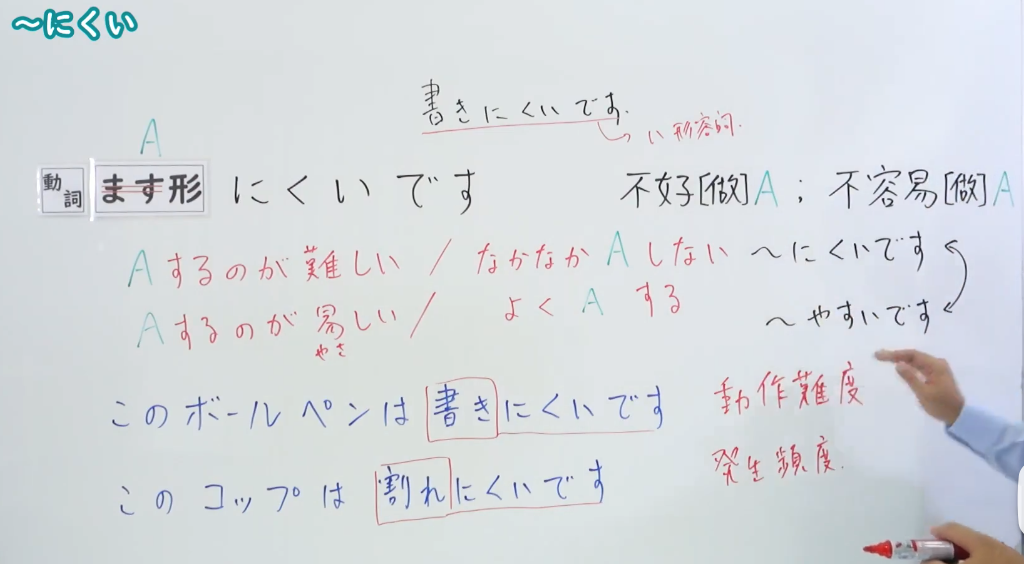 ～にくい
書きにくいです.
い形容詞.
A
動詞 ます形 にくいです 不好[做]A ; 不容易[做]A
Aするのが難しい / なかなか A しない ～にくいです
Aするのが易しい / よく A する ～やすいです
やさ
このボールペンは書きにくいです 動作難度
このコップは割れにくいです 発生頻度.